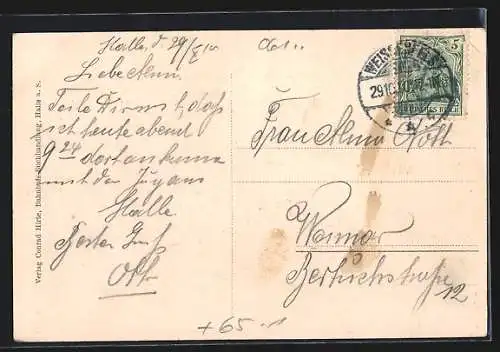 Halle, d. 29/X 10
Liebe Anna.
Teile Dir mit, daß
ich heute abend
9 24 dort ankomme
mit dem Zug aus
Halle
Bester Gruß
Otto
Frau Anna Roth
Weimar
Berkaerstraße
12
WEISSENFELS
29.10.10
5
5
DEUTSCHES REICH
Verlag Conrad Hirte, Bahnhofs-Buchhandlung, Halle a. S.
+65